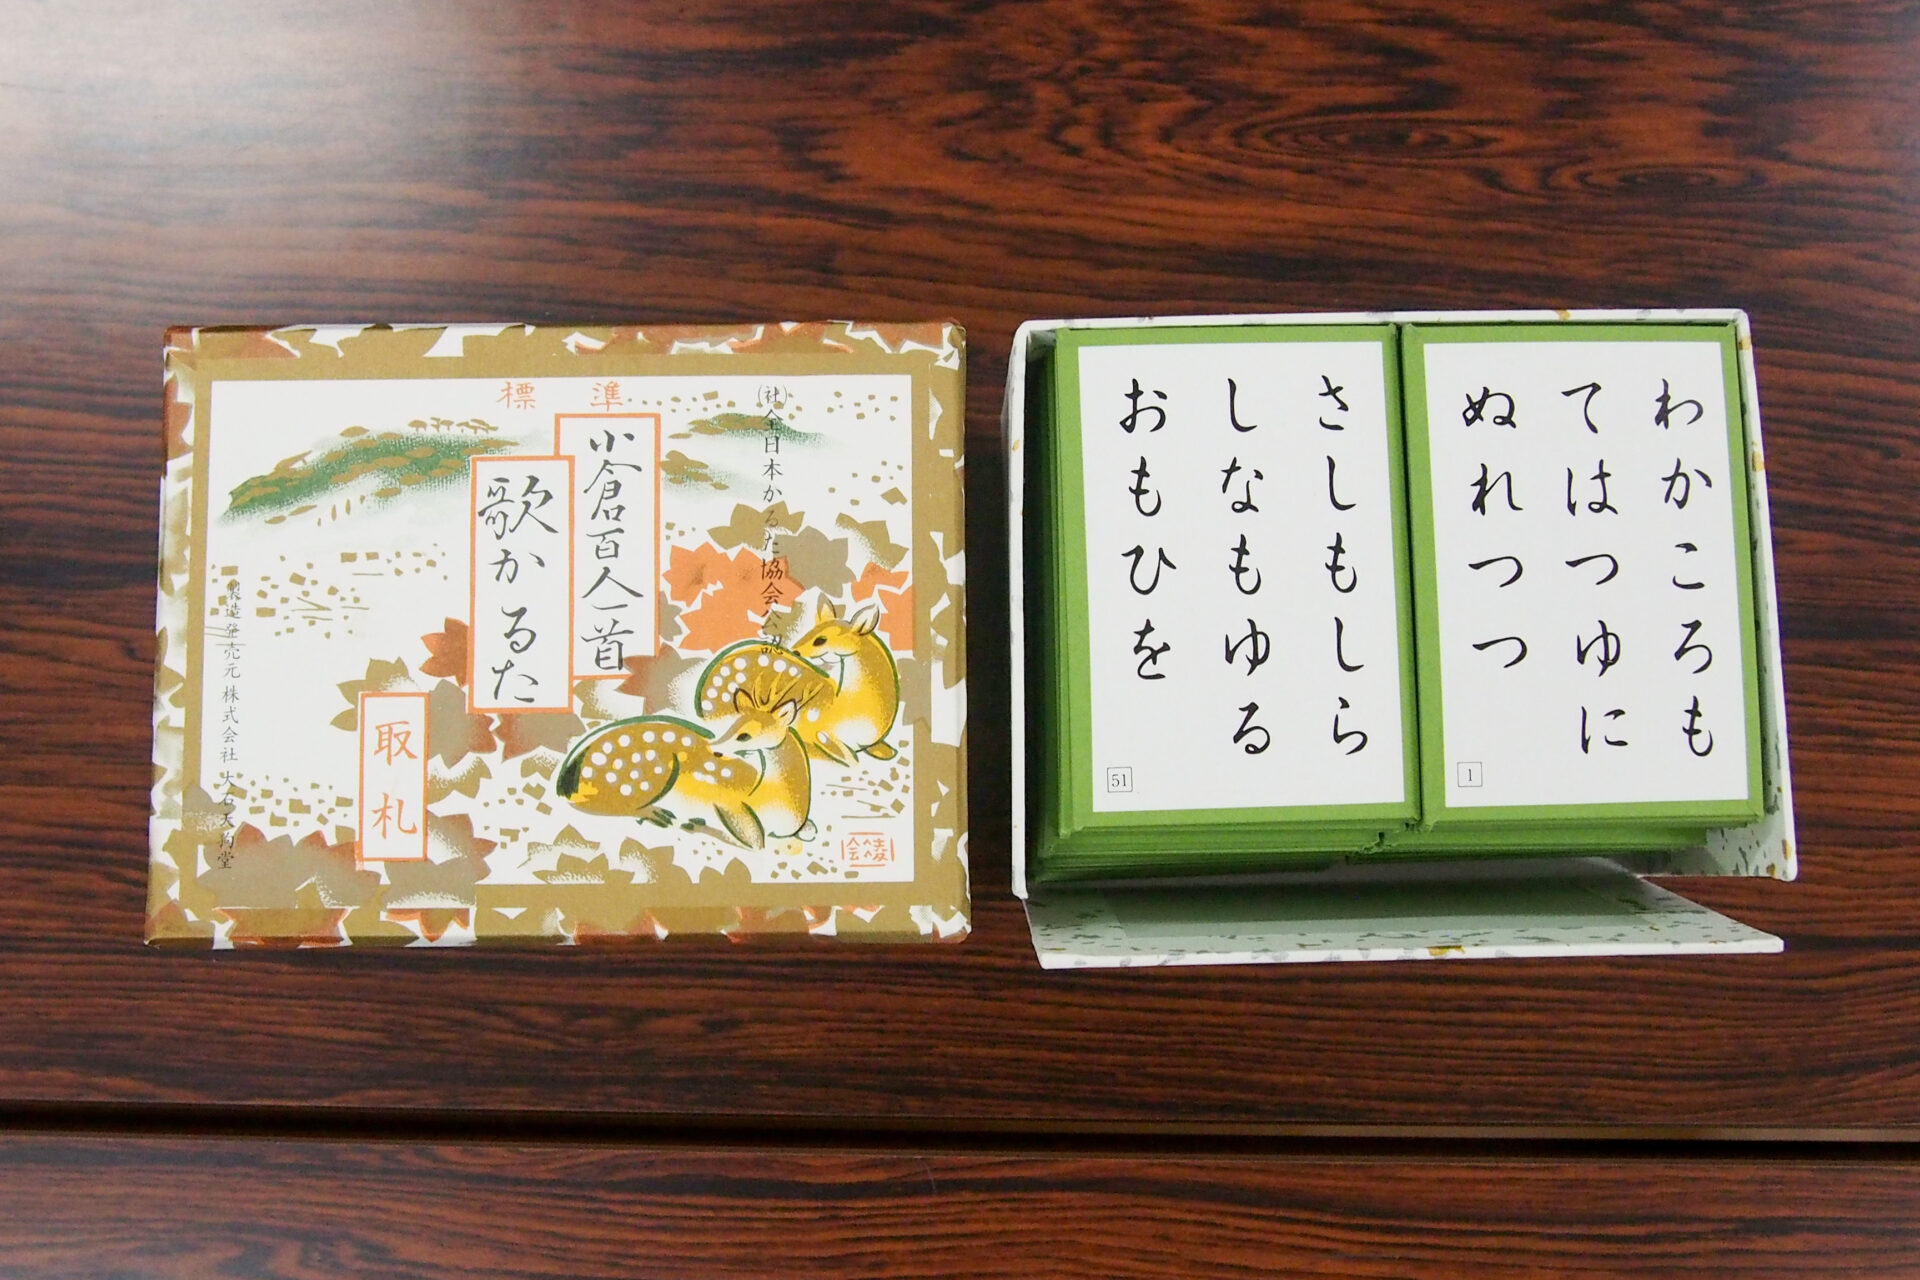 標準
(社)全日本かるた協会公認
小倉百人一首
歌かるた
取札
製造発売元 株式会社 大石天狗堂
さしもしら
しなもゆる
おもひを
51
わかころも
てはつゆに
ぬれつつ
1